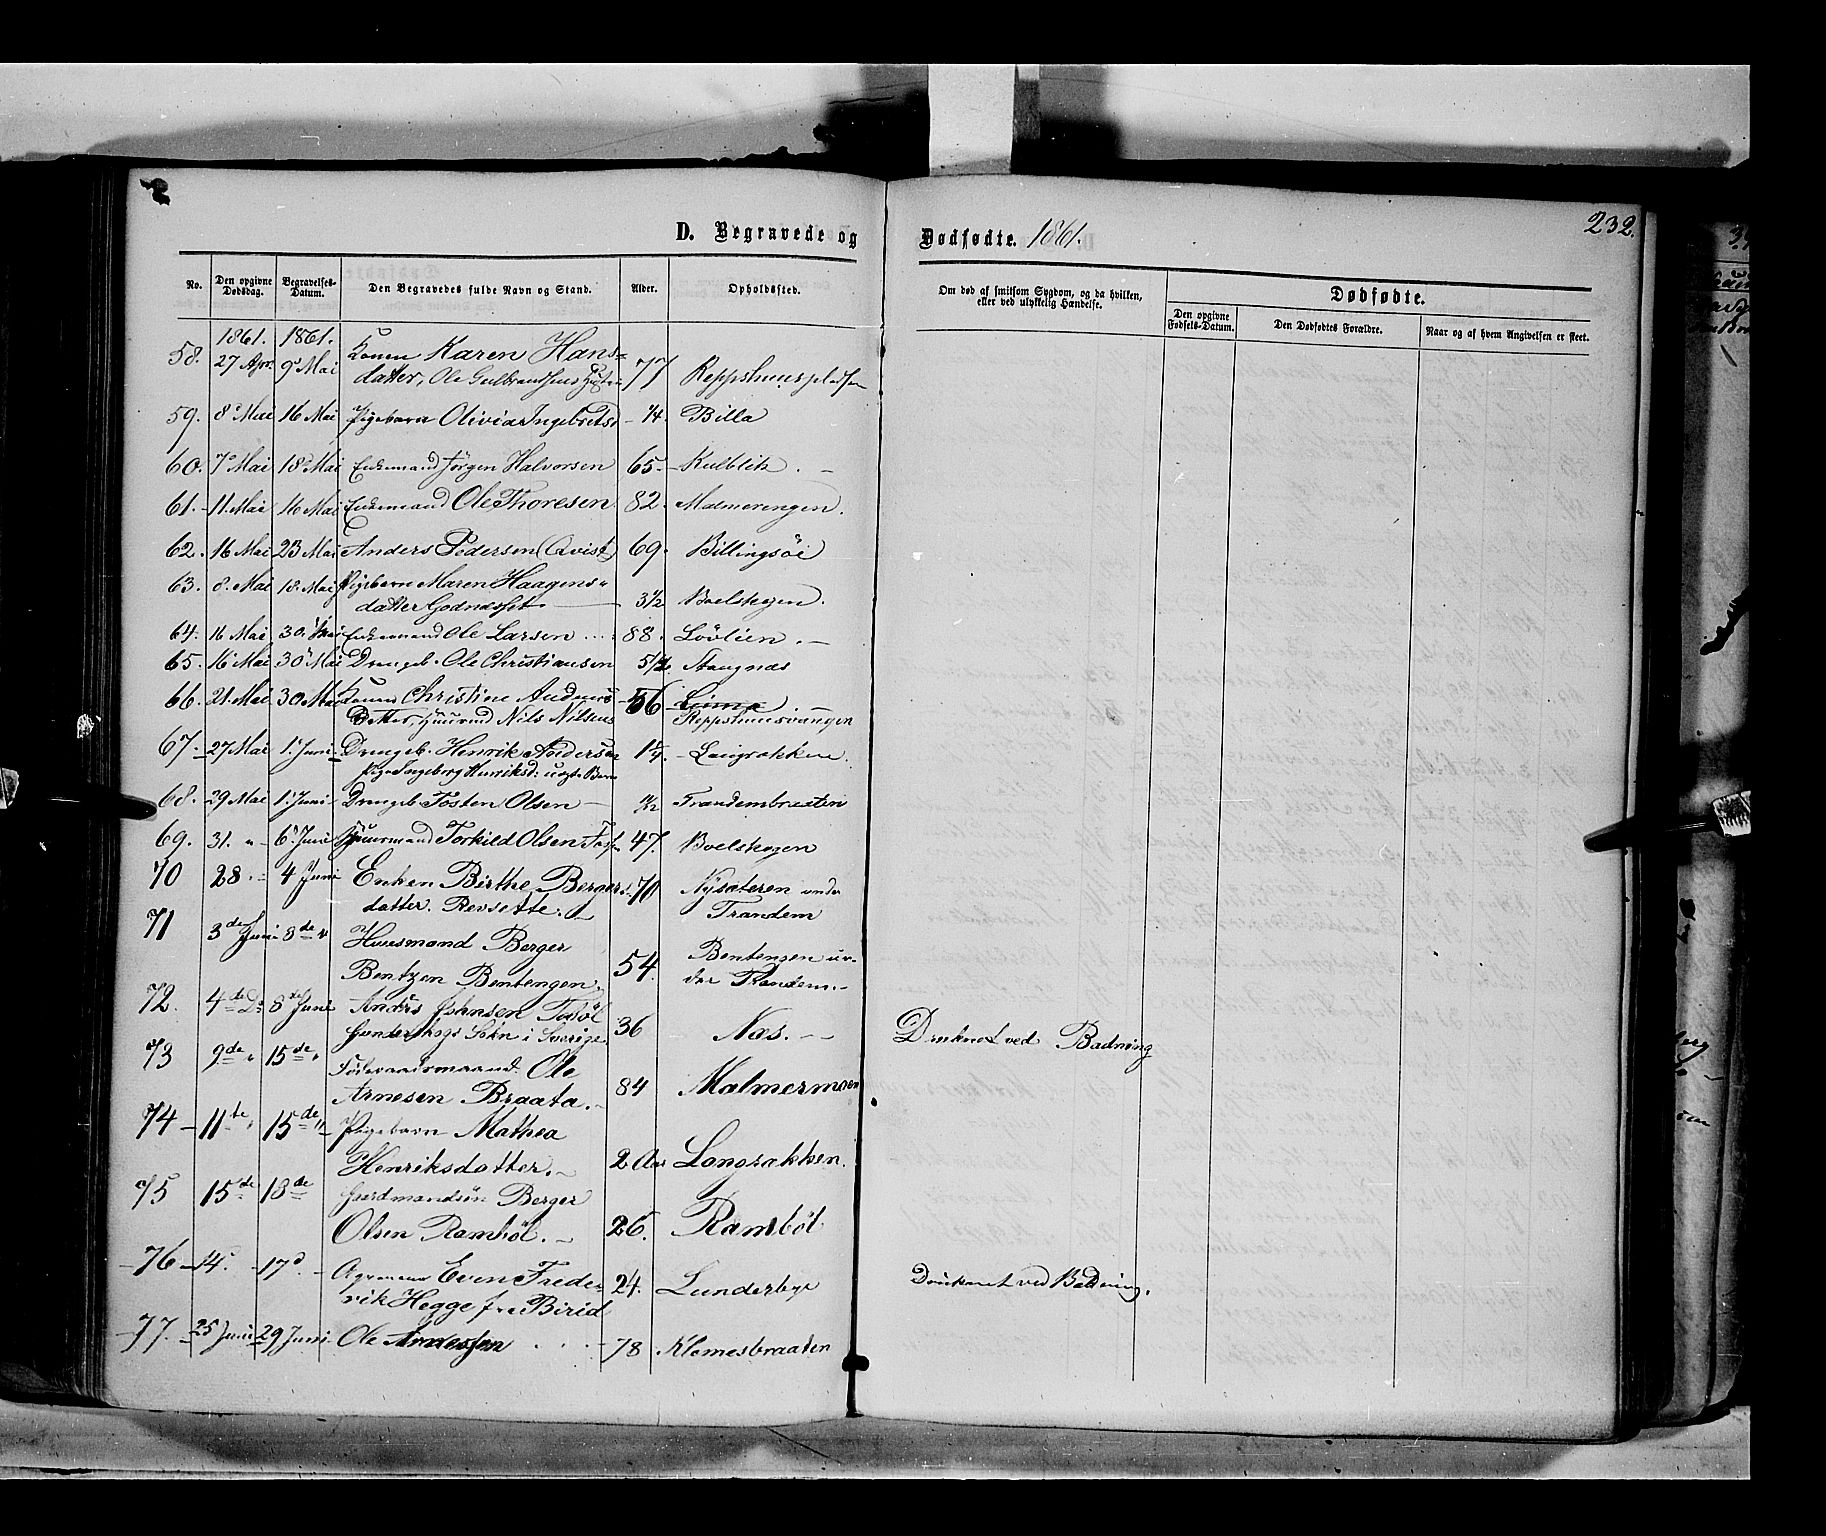 232.
D. Begravede og Dødfødte. 1861.
No. Den opgivne Dødsdag. Begravelses-Datum. Den Begravedes fulde Navn og Stand. Alder. Opholdssted.
Om død af smitsom Sygdom, og da hvilken, eller ved ulykkelig Hændelse.
Dødfødte.
Den opgivne Fødsels-Datum. Den Dødfødtes Forældre. Naar og af hvem Angivelsen er skeet.
1861. 1861.
58. 27 Apr. 9 Mai Konen Karen Hans-
datter, Ole Gulbrandsens 77 Reppshuuspladsen
59. 8 Mai 16 Mai Pigebarn Olivia Ingebretsd - 1/4. Billa
60. 7 Mai 18 Mai Enkemand Jörgen Halvorsen 65. Kulblik. -
61. 11. Mai 16 Mai Enkemand Ole Thoresen 82. Malmerengen.
62. 16 Mai 23 Mai Anders Pedersen (Qvist) 69. Billingsöe
63. 8. Mai 18. Mai Pigebarn Maren Haagens-
datter Godnæsset 3 1/2 Boelskogen.
64. 16 Mai 30. Mai Enkemand Ole Larsen 88. Lövlien. -
65. 16 Mai 30 Mai Drengeb. Ole Christiansen Stangnæs
66. 21. Mai 30 Mai Konen Christine Anders
Datter, Nils Nilsens 56 Reppshuusvangen
67. 27 Mai 1. Juni Drengeb. Henrik Andersen Langrakken.
Pige Ingeborg Henriksd: uægte Barn
68. 29 Mai 1. Juni Drengeb. Tosten Olsen - 11/12 Trandembraaten
69. 31. " 6. Juni Huusmand Torkild Olsen 47. Boelskogen
70 28. " 4 Juni Enken Birthe Bergers- 70 Nysæteren under
datter. Revsette. - Trandem
71 3de Juni 8de " Huusmand Berger
Bentzen Bentengen. 54. Bentengen un-
der Trandem. -
72. 4de Do 8de Juni Anders Johnsen
Sokn i Sverige. 36 Næs. - - Druknet ved Badning
73 9de " 15de " Föderaadsmand Ole
Arnesen Braata. - 84 Malmermoen
74 - 11te " 15de " - Pigebarn Mathea
Henriksdatter. - 2 Aar Langrakken.
75 15de 18de Gaardmandsön Berger
Olsen Ramböl. - 26. Ramböl
- 76 - 14. - 17d. - Agronom Even Frede-
rik Hegge fra Birid 24. Lunderbye Druknet ved Badning.
- 77. 25 Juni 29 Juni Ole Andersen - 78 Klomesbraaten